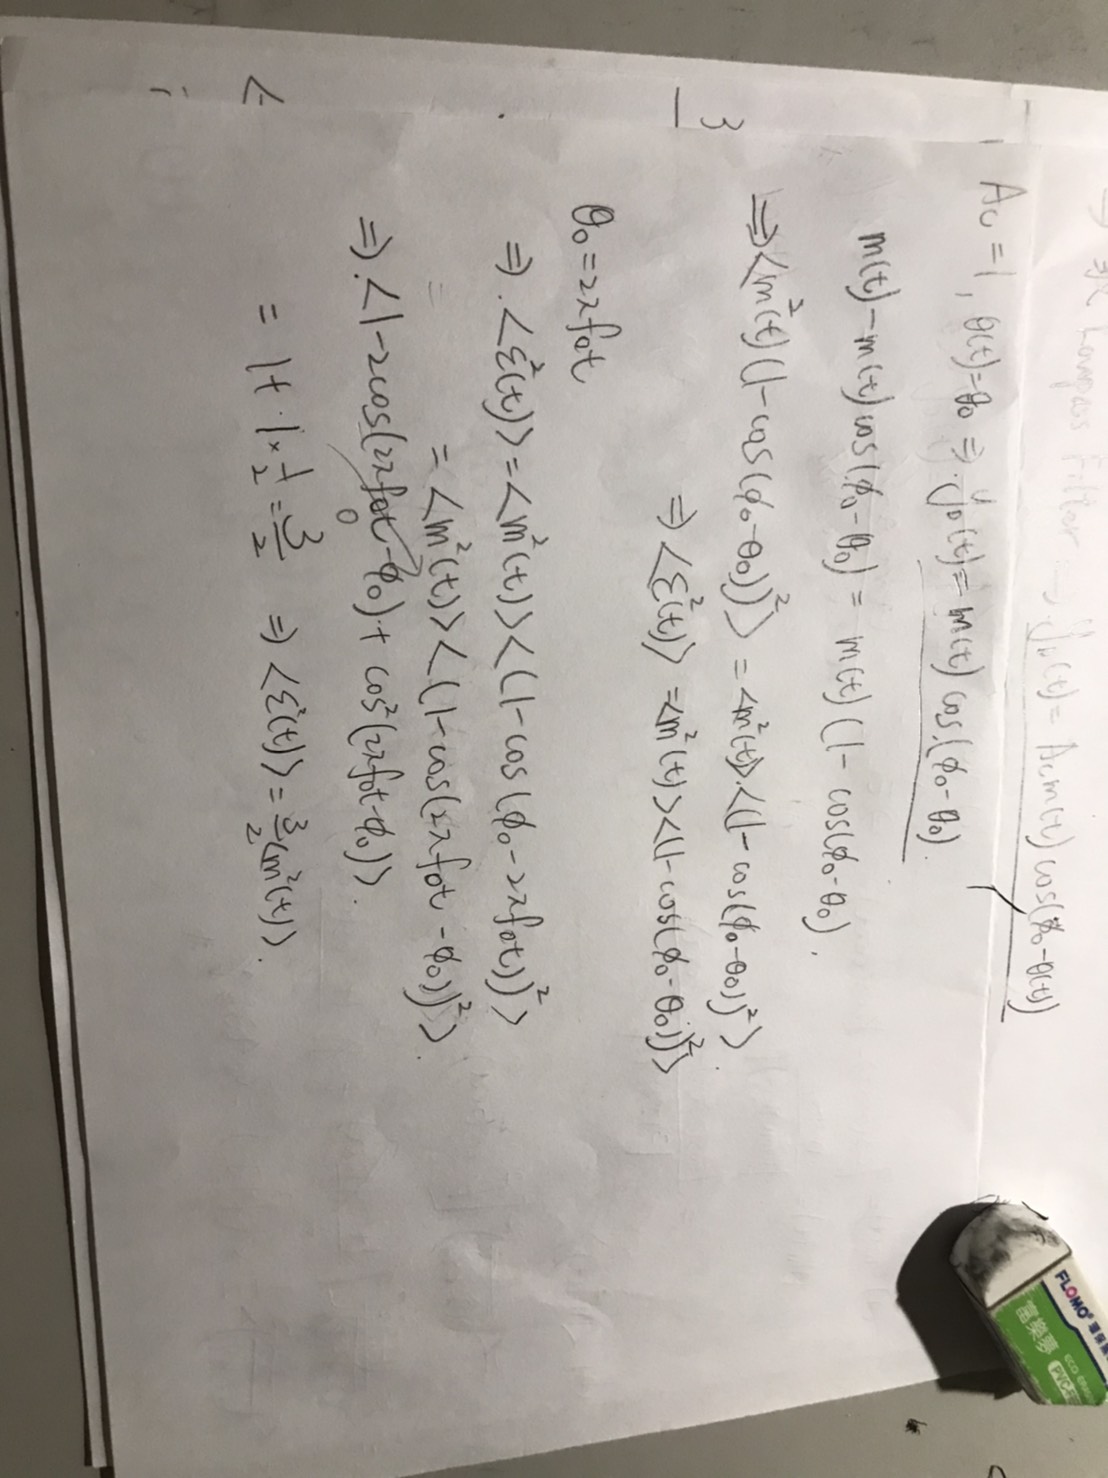 ⇒ 求 Lowpass Filter ⇒ y_D(t) = Acm(t) cos(ϕ₀-θ(t))
Ac = 1, θ(t)=θ₀ ⇒ y_D(t) = m(t) cos(ϕ₀-θ₀).
m(t)-m(t)cos(ϕ₀-θ₀) = m(t)(1- cos(ϕ₀-θ₀).
⇒ <m²(t)(1-cos(ϕ₀-θ₀))²> = <m²(t)>.<(1-cos(ϕ₀-θ₀))²>.
3
⇒ <ε²(t)> = <m²(t)><(1-cos(ϕ₀-θ₀))²>
θ₀ = 2πf₀t
⇒ <ε²(t)> = <m²(t)><(1-cos(ϕ₀-2πf₀t))²>
= <m²(t)><(1-cos(2πf₀t-ϕ₀))²>.
⇒ <1-2cos(2πf₀t-ϕ₀)+ cos²(2πf₀t-ϕ₀)>.
0
= 1+1×1/2=3/2 ⇒ <ε²(t)> = 3/2<m²(t)>.
FLOMO® 環保
富樂夢 ECO
PVC-FREE